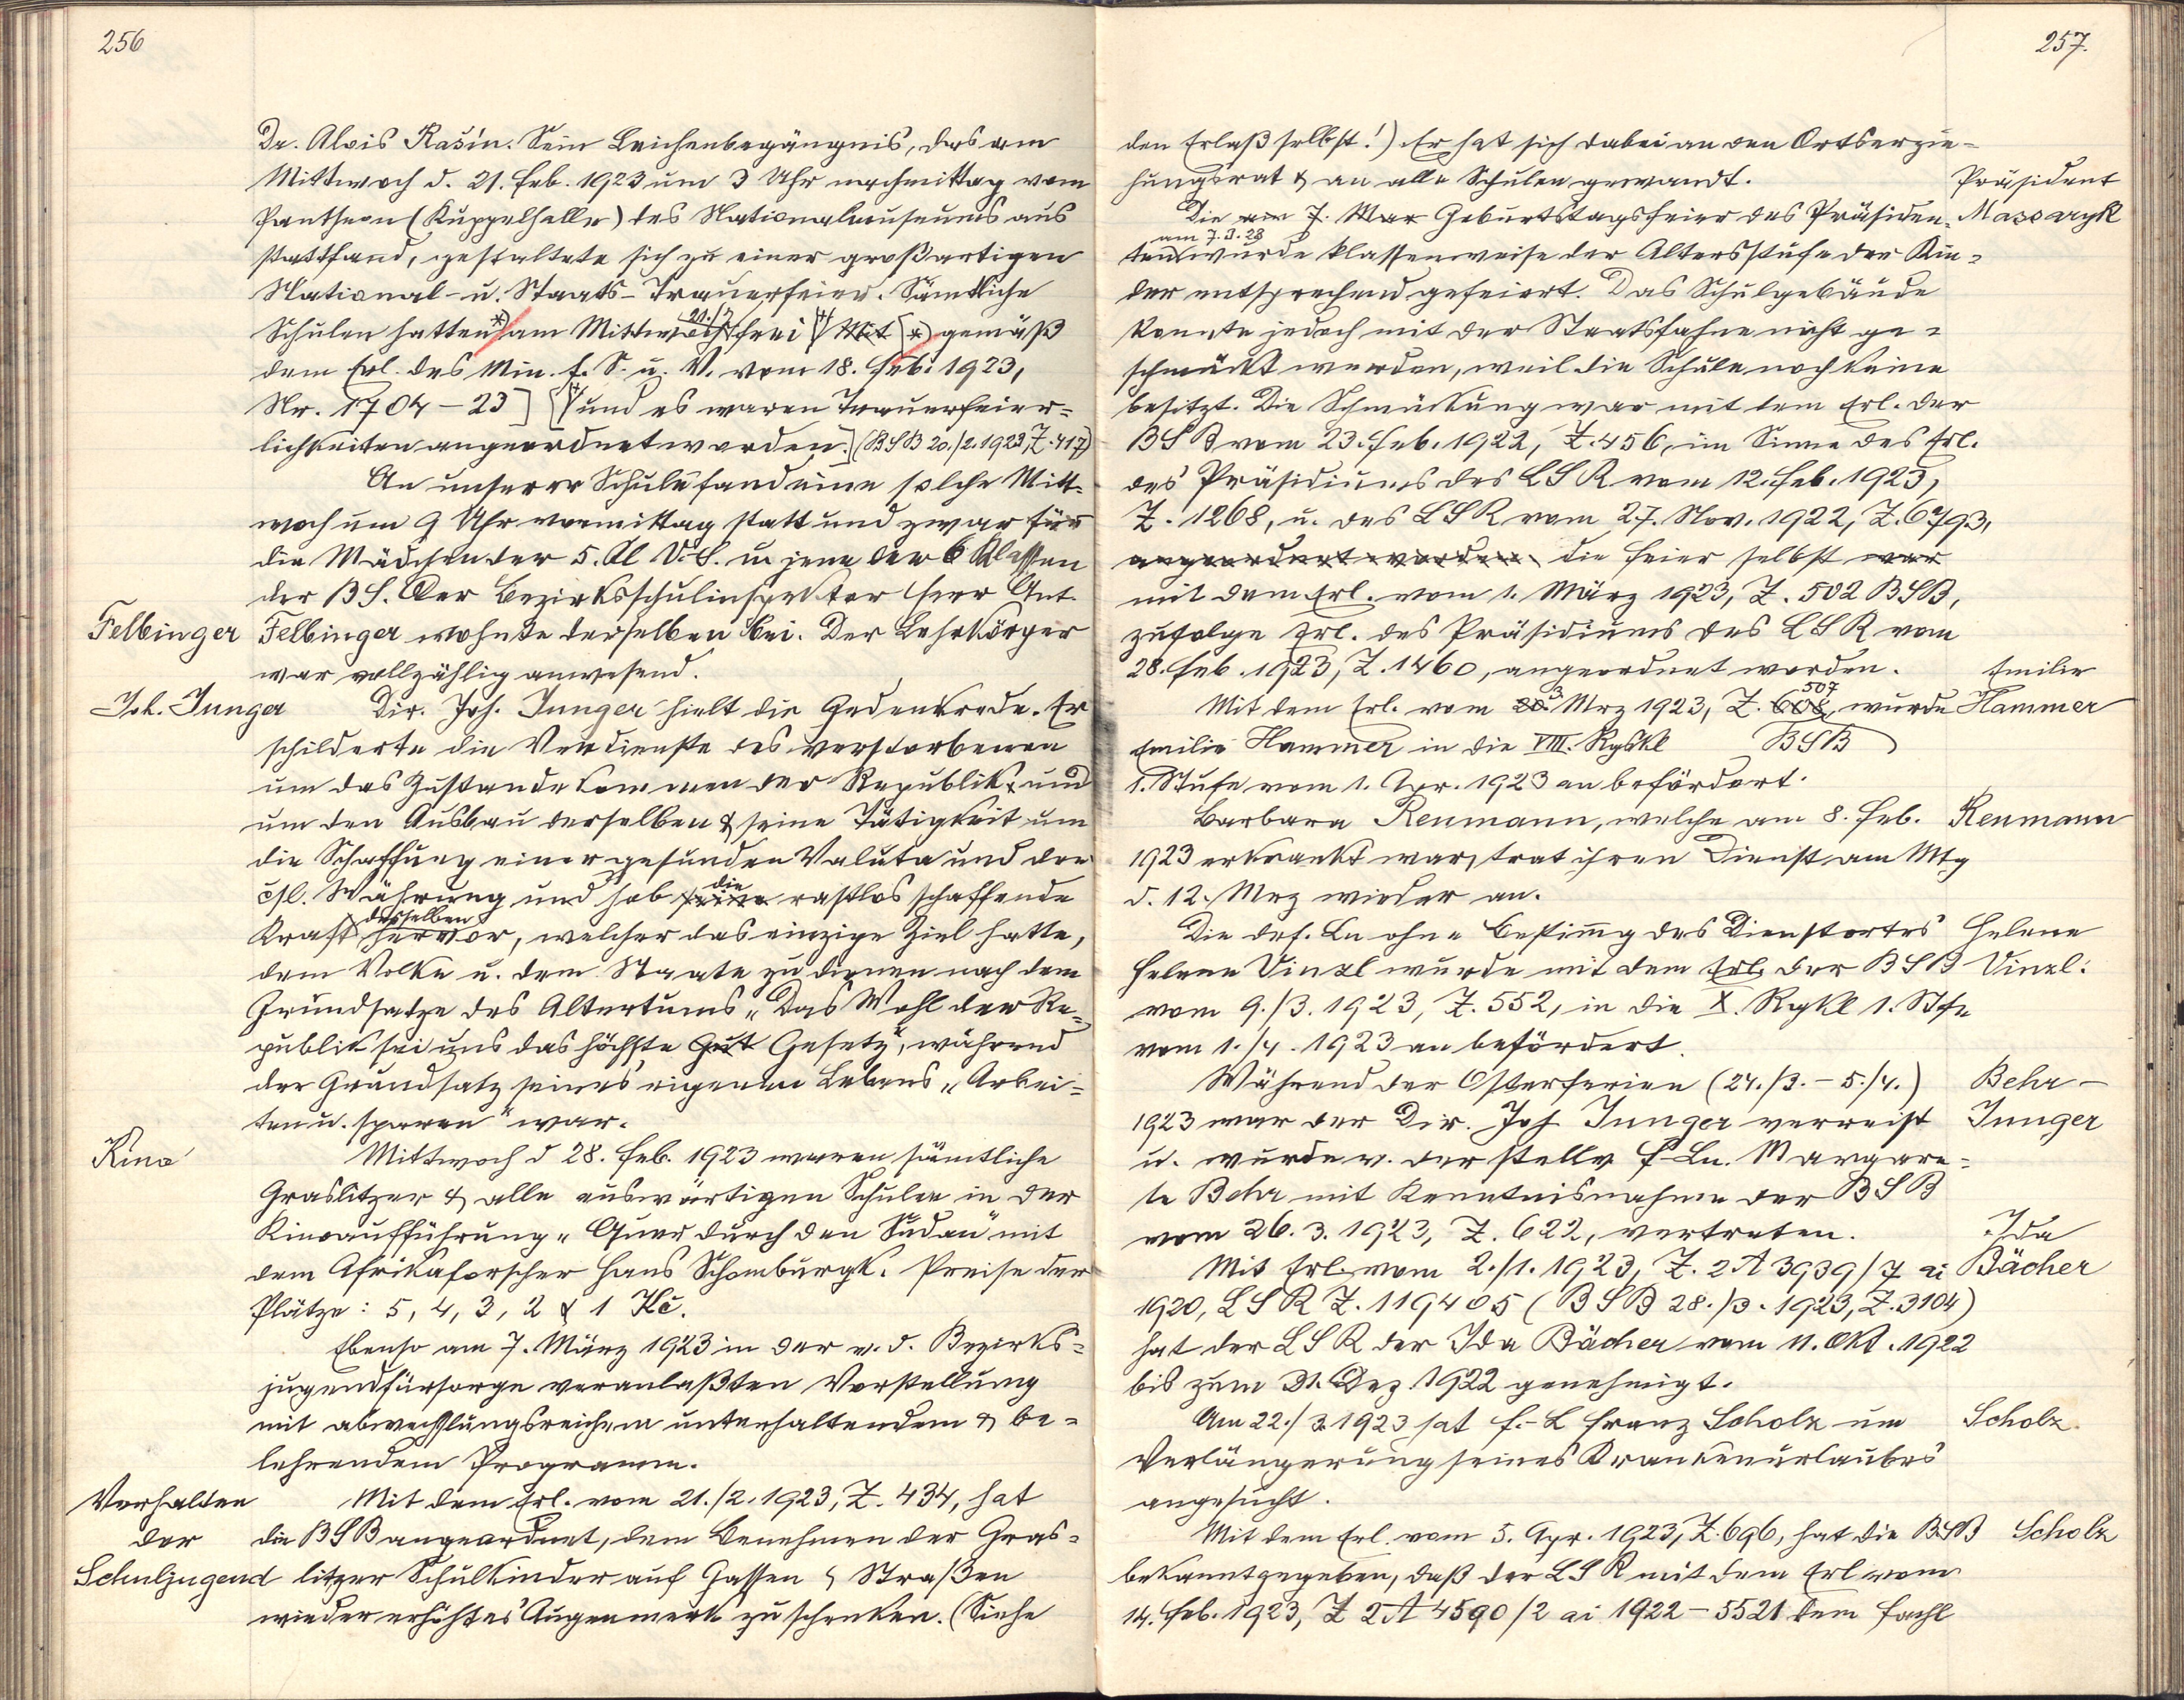 256
Dr. Alois Rašín. Sein Leichenbegängnis, das am
Mittwoch d. 21. Feb. 1923 um 3 Uhr nachmittag vom
Pantheon (Kuppelhalle) des Nationalmuseums aus
stattfand, gestaltete sich zu einer großartigen
National- u. Staats-Trauerfeier. Sämtliche
Schulen hatten *) am Mittwoch 21./2 frei Mit *) gemäß
dem Erl. des Min. f. S. u. V. vom 18. Feb. 1923,
Nr. 1704-23] und es waren Trauerfeier=
lichkeiten angeordnet worden.] (BSB 20./2. 1923, Z. 417)
An unserer Schule fand eine solche Mitt=
woch um 9 Uhr vormittag statt und zwar für
die Mädchen der 5. Kl V.S. u. jene der 6 Klassen
der BS. Der Bezirksschulinspektor Herr Ant.
Felbinger Felbinger wohnte derselben bei. Der Lehrkörper
war vollzählig anwesend.
Joh. Junger Dir. Joh. Junger hielt die Gedenkrede. Er
schilderte die Verdienste des verstorbenen
um das Zustandekommen der Republik und
um den Ausbau derselben & seine Tätigkeit um
die Schaffung einer gesunden Valuta und der
čsl. Währung und hob seine die rastlos schaffende
Kraft desselben hervor, welcher das einzige Ziel hatte,
dem Volke u. dem Staate zu dienen nach dem
Grundsatze des Altertums „Das Wohl der Re=
publik sei uns das höchste Gut Gesetz", während
der Grundsatz seines eigenen Lebens „Arbei=
ten u. sparen" war.
Kino Mittwoch d 28. Feb. 1923 waren sämtliche
Graslitzer & alle auswärtigen Schulen in der
Kinoaufführung „Quer durch den Sudan" mit
dem Afrikaforscher Hans Schomburgk. Preise der
Plätze: 5, 4, 3, 2 & 1 Kč.
Ebenso am 7. März 1923 in der v. d. Bezirks=
jugendfürsorge veranlaßten Vorstellung
mit abwechslungsreichem unterhaltendem & be=
lehrendem Programm.
Verhalten Mit dem Erl. vom 21./2. 1923, Z. 434, hat
der die BSB angeordnet, dem Benehmen der Gras=
Schuljugend litzer Schulkinder auf Gassen & Straßen
wieder erhöhtes Augenmerk zu schenken. (Siehe
257.
den Erlaß selbst!) Er hat sich dabei an den Ortserzie=
hungsrat & an alle Schulen gewandt. Präsident
Die am 7. Mar Geburtstagsfeier des Präsiden= Massaryk
ten am 7.3.23 wurde klassenweise der Altersstufe der Kin=
der entsprechend gefeiert. Das Schulgebäude
konnte jedoch mit der Staatsfahne nicht ge=
schmückt werden, weil die Schule noch keine
besitzt. Die Schmückung war mit dem Erl. der
BSB vom 23. Feb. 1922, Z. 456, im Sinne des Erl.
des Präsidiums des LSR vom 12. Feb. 1923,
Z. 1268, u. des LSR vom 27. Nov. 1922, Z. 62793,
angeordnet worden die Feier selbst war
mit dem Erl. vom 1. März 1923, Z. 502 BSB,
zufolge Erl. des Präsidiums des LSR vom
28. Feb. 1923, Z. 1460, angeordnet worden. Emilie
Mit dem Erl. vom 3. Mrz 1923, Z. 608 507, wurde Hammer
Emilie Hammer in die VIII. Rgskl BSB
1. Stufe vom 1. Apr. 1923 an befördert.
Barbara Renmann, welche am 8. Feb. Renmann
1923 erkrankt war, trat ihren Dienst am Mtg
d. 12. Mrz wieder an.
Die def. Ln ohne Bestimg des Dienstortes Helene
Helene Vinzl wurde mit dem Erl. der BSB Vinzl.
vom 9./3. 1923, Z. 552, in die X. Rgkl 1. Stfe
vom 1./4. 1923 an befördert.
Während der Osterferien (24./3. - 5./4.) Behr-
1923 war der Dir. Joh Junger verreist Junger
u. wurde v. der stellv F-Ln. Margare=
te Behr mit Kenntnisnahme der BSB
vom 26. 3. 1923, Z. 622, vertreten. Ida
Mit Erl. vom 2./1. 1923, Z. 2A 3939/7 ai Bächer
1920, LSR Z. 119405 (BSB 28./3. 1923, Z. 3104)
hat der LSR der Ida Bächer vom 11. Okt. 1922
bis zum 31. Dez. 1922 genehmigt.
Am 22./3. 1923 hat F.-L Franz Scholz um Scholz.
Verlängerung seines Krankenurlaubes
angesucht.
Mit dem Erl. vom 5. Apr. 1923, Z. 696, hat die BSB Scholz
bekanntgegeben, daß der LSR mit dem Erl vom
14. Feb. 1923, Z 2A 4590/2 ai 1922-5521 dem Fachl